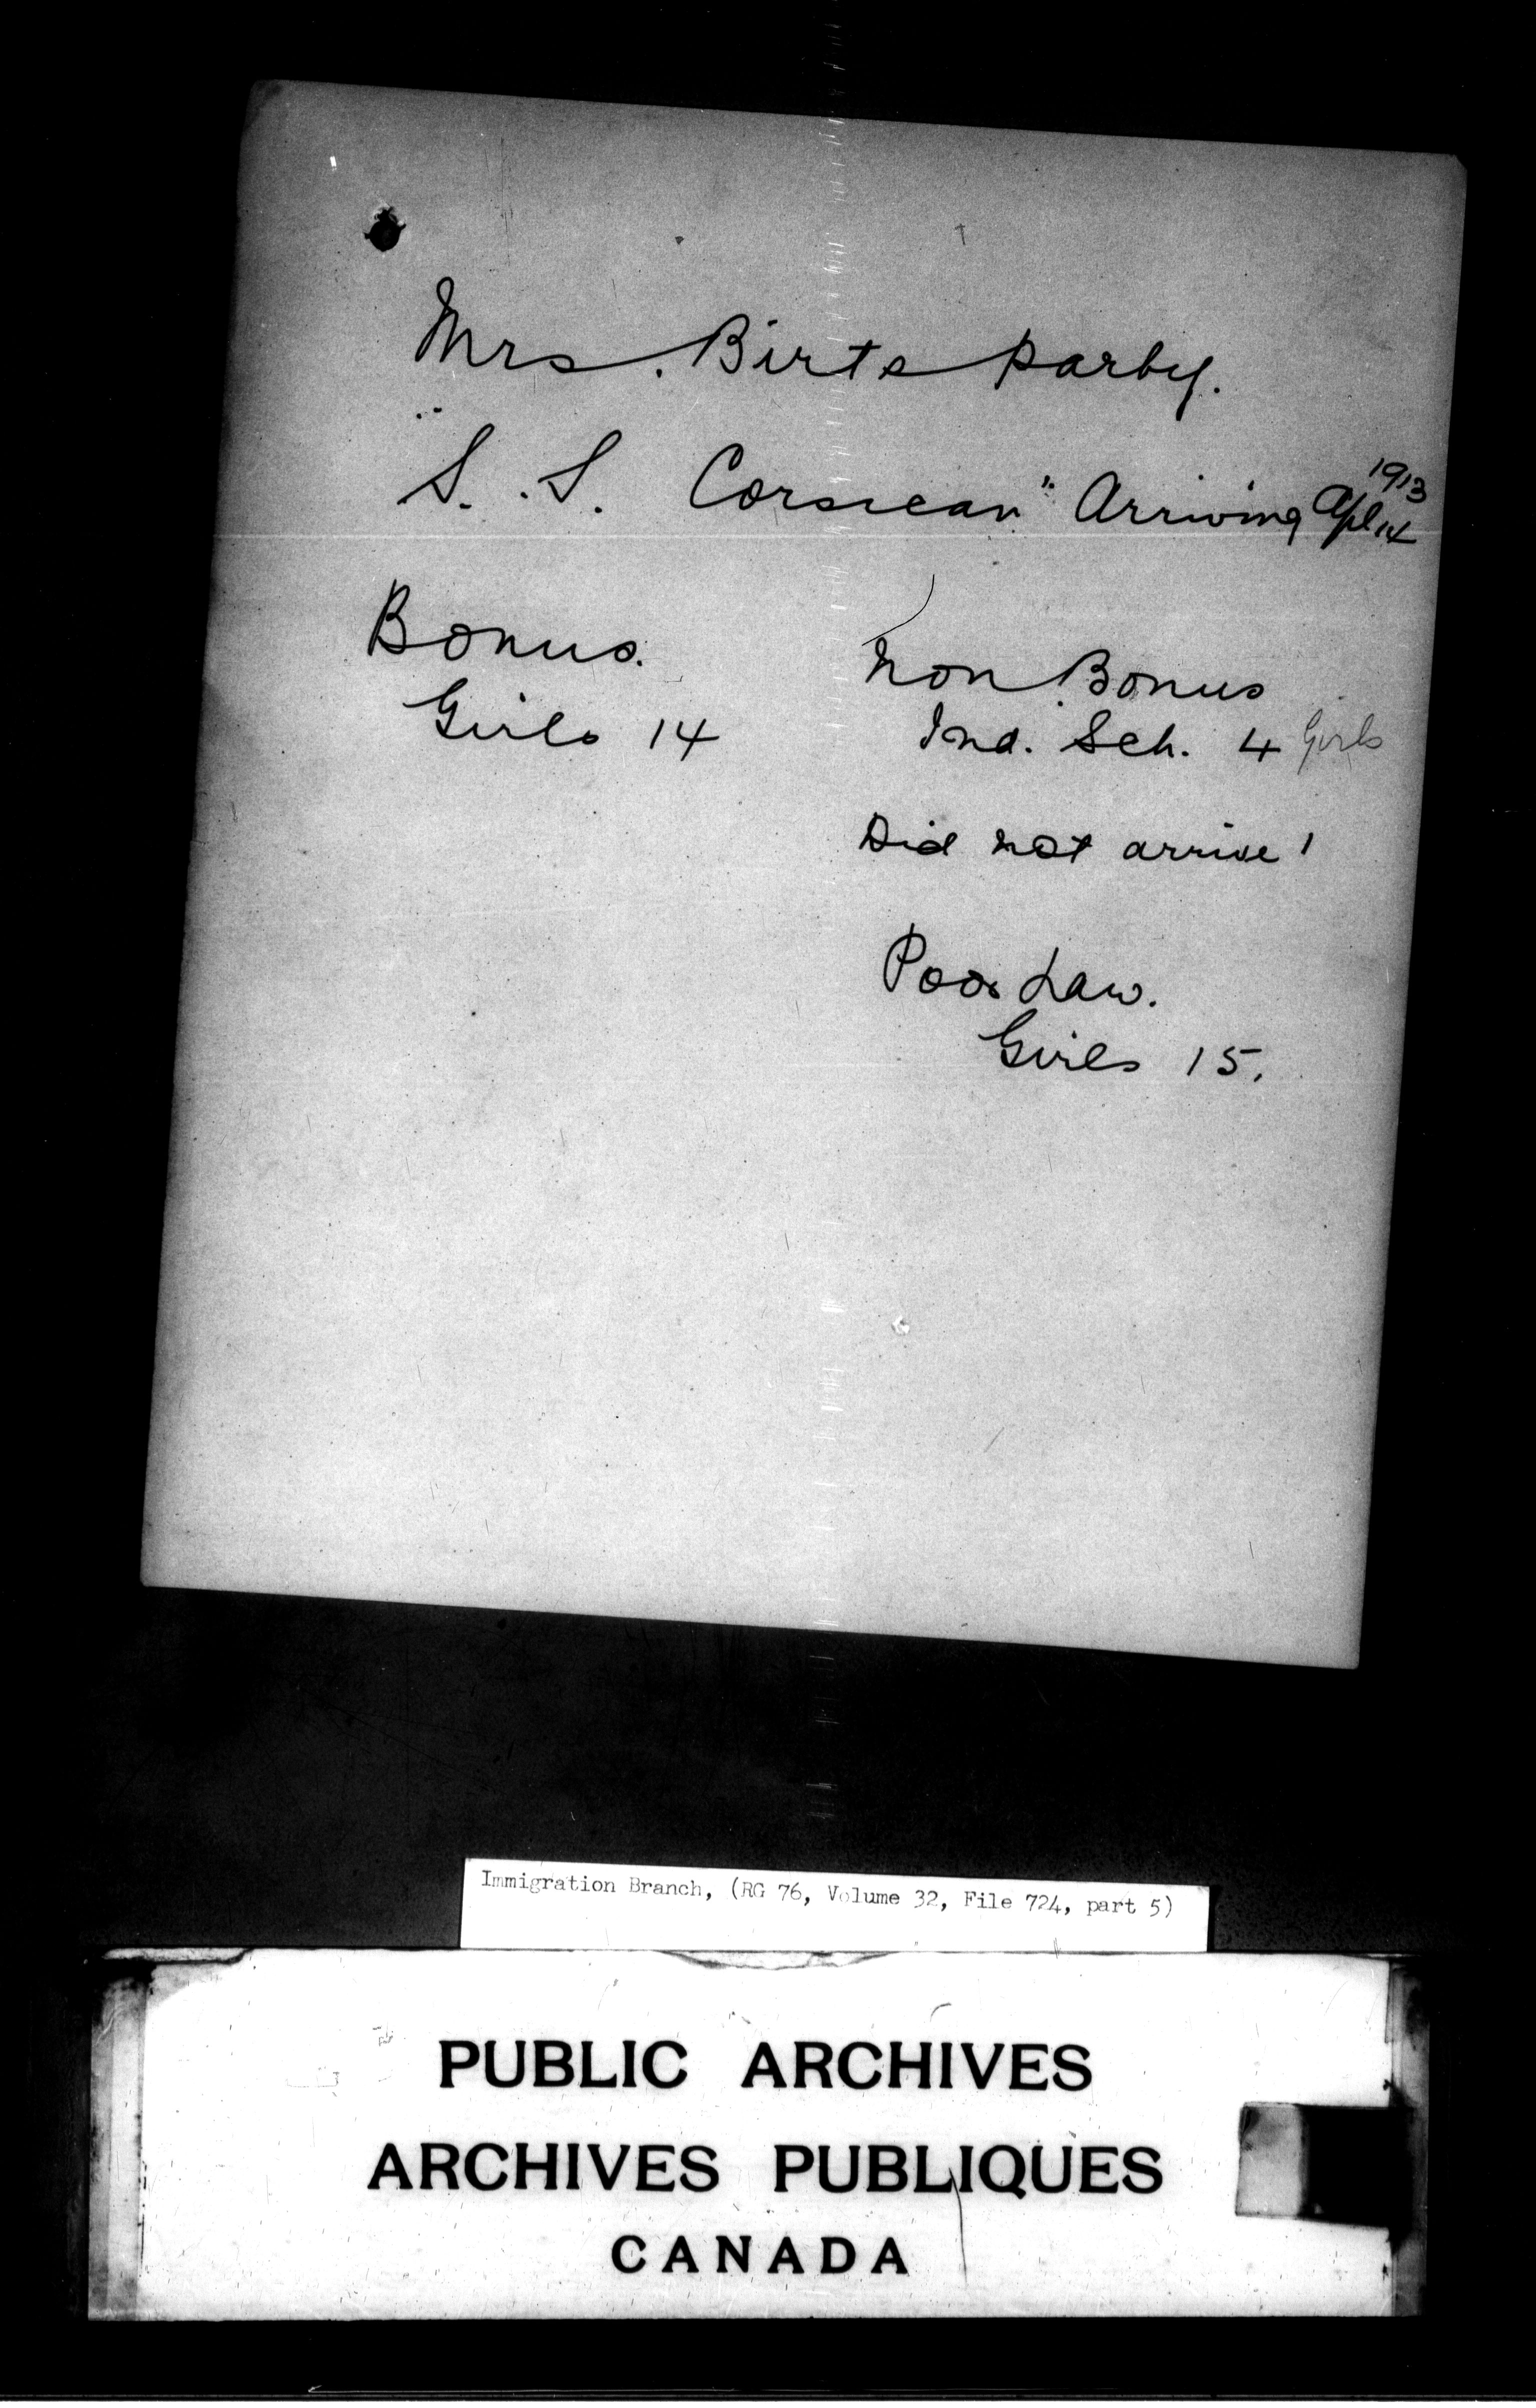 Mrs. Birts party.
"S.S. Corsican" Arriving Apl 14 1913
Bonus.
Girls 14
Non Bonus
Ind. Sch. 4 Girls
Did not arrive 1
Poor Law.
Girls 15.
Immigration Branch, (RG 76, Volume 32, File 724, part 5)
PUBLIC ARCHIVES
ARCHIVES PUBLIQUES
CANADA